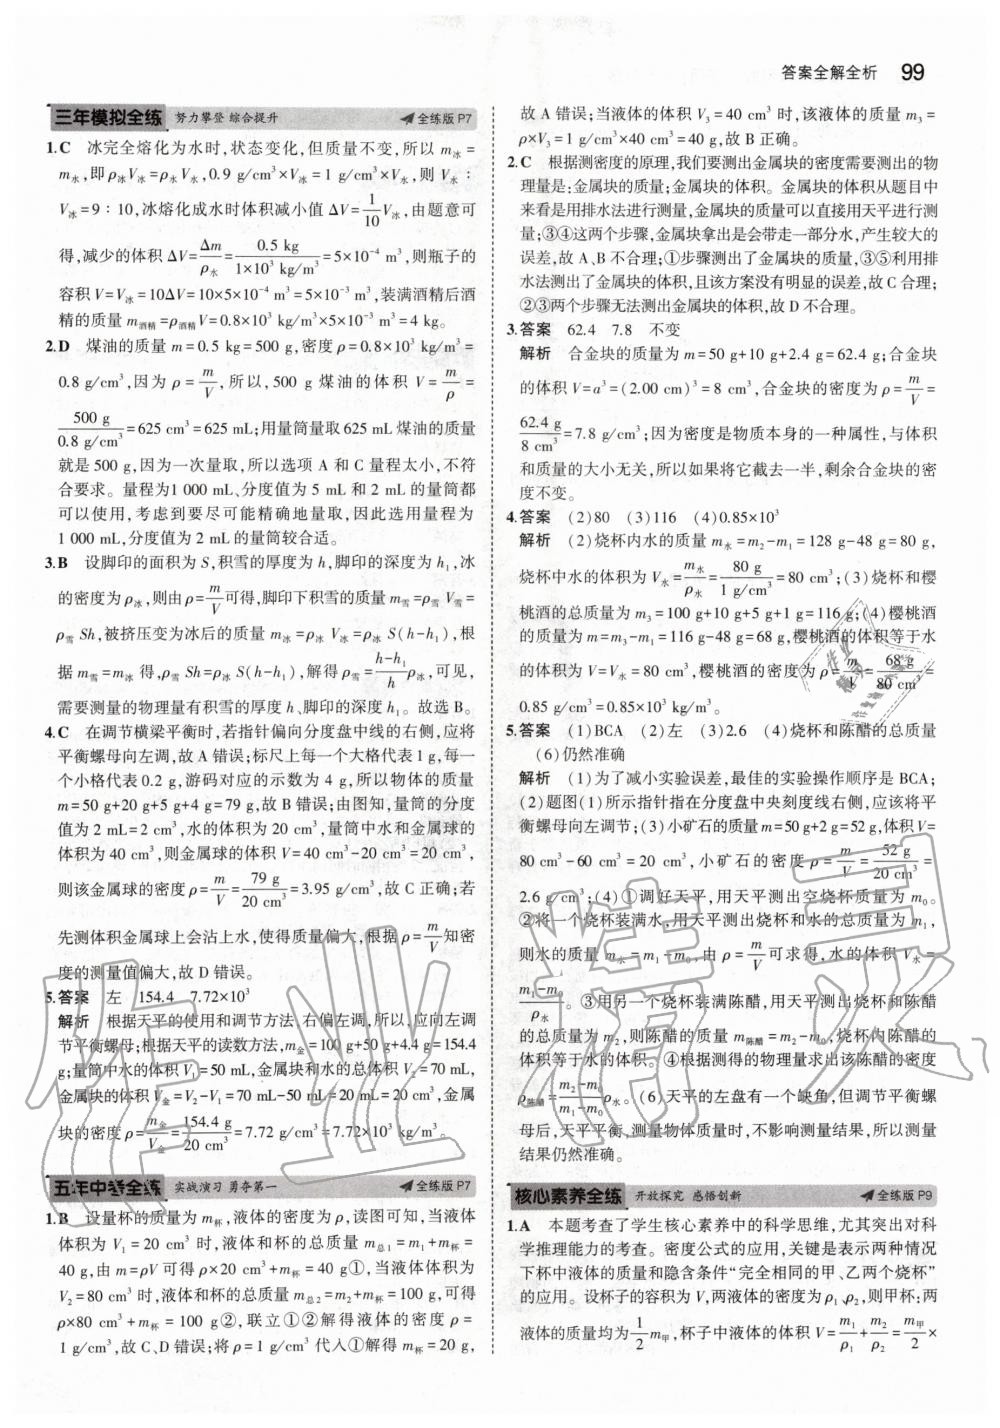 答案全解全析 99
三年模拟全练 努力攀登 综合提升 全练版 P7
1.C 冰完全熔化为水时,状态变化,但质量不变,所以 m冰=
m水,即 ρ冰V冰=ρ水V水,0.9 g/cm³×V冰=1 g/cm³×V水,则 V水:
V冰=9:10,冰熔化成水时体积减小值 ΔV=1/10 V冰,由题意可
得,减少的体积 ΔV=Δm/ρ水=0.5 kg/(1×10³ kg/m³)=5×10⁻⁴ m³,则瓶子的
容积 V=V冰=10ΔV=10×5×10⁻⁴ m³=5×10⁻³ m³,装满酒精后酒
精的质量 m酒精=ρ酒精V=0.8×10³ kg/m³×5×10⁻³ m³=4 kg。
2.D 煤油的质量 m=0.5 kg=500 g,密度 ρ=0.8×10³ kg/m³=
0.8 g/cm³,因为 ρ=m/V,所以,500 g 煤油的体积 V=m/ρ=
500 g/(0.8 g/cm³)=625 cm³=625 mL;用量筒量取625 mL煤油的质量
就是 500 g,因为一次量取,所以选项 A 和 C 量程太小,不符
合要求。量程为1 000 mL、分度值为 5 mL 和 2 mL 的量筒都
可以使用,考虑到要尽可能精确地量取,因此选用量程为
1 000 mL,分度值为 2 mL 的量筒较合适。
3.B 设脚印的面积为 S,积雪的厚度为 h,脚印的深度为 h₁,冰
的密度为 ρ冰,则由 ρ=m/V可得,脚印下积雪的质量 m雪=ρ雪 V雪=
ρ雪 Sh,被挤压变为冰后的质量 m冰=ρ冰 V冰=ρ冰 S(h-h₁),根
据 m雪=m冰 得,ρ雪 Sh=ρ冰 S(h-h₁),解得 ρ雪=(h-h₁)/h ρ冰,可见,
需要测量的物理量有积雪的厚度 h、脚印的深度 h₁。故选 B。
4.C 在调节横梁平衡时,若指针偏向分度盘中线的右侧,应将
平衡螺母向左调,故 A 错误;标尺上每一个大格代表 1 g,每一
个小格代表 0.2 g,游码对应的示数为 4 g,所以物体的质量
m=50 g+20 g+5 g+4 g=79 g,故 B 错误;由图知,量筒的分度
值为 2 mL=2 cm³,水的体积为 20 cm³,量筒中水和金属球的
体积为 40 cm³,则金属球的体积 V=40 cm³-20 cm³=20 cm³,
则该金属球的密度 ρ=m/V=79 g/20 cm³=3.95 g/cm³,故 C 正确;若
先测体积金属球上会沾上水,使得质量偏大,根据 ρ=m/V知密
度的测量值偏大,故 D 错误。
5.答案 左 154.4 7.72×10³
解析 根据天平的使用和调节方法,右偏左调,所以,应向左调
节平衡螺母;根据天平的读数方法,m金=100 g+50 g+4.4 g=154.4
g;量筒中水的体积 V₁=50 mL,金属块和水的总体积 V₂=70 mL,
金属块的体积 V金=V₂-V₁=70 mL-50 mL=20 mL=20 cm³,金属
块的密度 ρ=m金/V金=154.4 g/20 cm³=7.72 g/cm³=7.72×10³ kg/m³。
五年中考全练 实战演习 勇夺第一 全练版 P7
1.B 设量杯的质量为 m杯,液体的密度为 ρ,读图可知,当液体
体积为 V₁=20 cm³ 时,液体和杯的总质量 m总1=m₁+m杯=
40 g,由 m=ρV 可得 ρ×20 cm³+m杯=40 g①,当液体体积为
V₂=80 cm³ 时,液体和杯的总质量 m总2=m₂+m杯=100 g,可得
ρ×80 cm³+m杯=100 g②,联立①②解得液体的密度 ρ=
1 g/cm³,故 C、D 错误;将 ρ=1 g/cm³ 代入①解得 m杯=20 g,
故 A 错误;当液体的体积 V₃=40 cm³ 时,该液体的质量 m₃=
ρ×V₃=1 g/cm³×40 cm³=40 g,故 B 正确。
2.C 根据测密度的原理,我们要测出金属块的密度需要测出的物
理量是:金属块的质量;金属块的体积。金属块的体积从题目中
来看是用排水法进行测量,金属块的质量可以直接用天平进行测
量;③④这两个步骤,金属块拿出是会带走一部分水,产生较大的
误差,故 A、B 不合理;①步骤测出了金属块的质量,③⑤利用排
水法测出了金属块的体积,且该方案没有明显的误差,故 C 合理;
②③两个步骤无法测出金属块的体积,故 D 不合理。
3.答案 62.4 7.8 不变
解析 合金块的质量为 m=50 g+10 g+2.4 g=62.4 g;合金块
的体积 V=a³=(2.00 cm)³=8 cm³,合金块的密度为 ρ=m/V=
62.4 g/8 cm³=7.8 g/cm³;因为密度是物质本身的一种属性,与体积
和质量的大小无关,所以如果将它截去一半,剩余合金块的密
度不变。
4.答案 (2)80 (3)116 (4)0.85×10³
解析 (2)烧杯内水的质量 m水=m₂-m₁=128 g-48 g=80 g,
烧杯中水的体积为 V水=m水/ρ水=80 g/(1 g/cm³)=80 cm³;(3)烧杯和樱
桃酒的总质量为 m₃=100 g+10 g+5 g+1 g=116 g;(4)樱桃酒
的质量为 m=m₃-m₁=116 g-48 g=68 g,樱桃酒的体积等于水
的体积为 V=V水=80 cm³,樱桃酒的密度为 ρ=m/V=68 g/80 cm³=
0.85 g/cm³=0.85×10³ kg/m³。
5.答案 (1)BCA (2)左 (3)2.6 (4)烧杯和陈醋的总质量
(6)仍然准确
解析 (1)为了减小实验误差,最佳的实验操作顺序是 BCA;
(2)题图(1)所示指针指在分度盘中央刻度线右侧,应该将平
衡螺母向左调节;(3)小矿石的质量m=50 g+2 g=52 g,体积V=
80 cm³-60 cm³=20 cm³,小矿石的密度 ρ=m/V=52 g/20 cm³=
2.6 g/cm³;(4)①调好天平,用天平测出空烧杯质量为 m₀。
②将一个烧杯装满水,用天平测出烧杯和水的总质量为 m₁,
则水的质量 m水=m₁-m₀,由 ρ=m/V可求得,水的体积 V水=
(m₁-m₀)/ρ水。③用另一个烧杯装满陈醋,用天平测出烧杯和陈醋
的总质量为 m₂,则陈醋的质量 m陈醋=m₂-m₀,烧杯内陈醋的
体积等于水的体积。④根据测得的物理量求出该陈醋的密度
ρ陈醋=(m₂-m₀)/(m₁-m₀) ρ水。(6)天平的左盘有一个缺角,但调节平衡螺
母后,天平平衡,测量物体质量时,不影响测量结果,所以测量
结果仍然准确。
核心素养全练 开放探究 感悟创新 全练版 P9
1.A 本题考查了学生核心素养中的科学思维,尤其突出对科
学推理能力的考查。密度公式的应用,关键是表示两种情况
下杯中液体的质量和隐含条件“完全相同的甲、乙两个烧杯”
的应用。设杯子的容积为 V,两液体的密度为 ρ₁、ρ₂,则甲杯:两
液体的质量均为1/2 m甲,杯子中液体的体积 V=m₁/ρ₁+m₂/ρ₂=m甲/2×
作业精灵